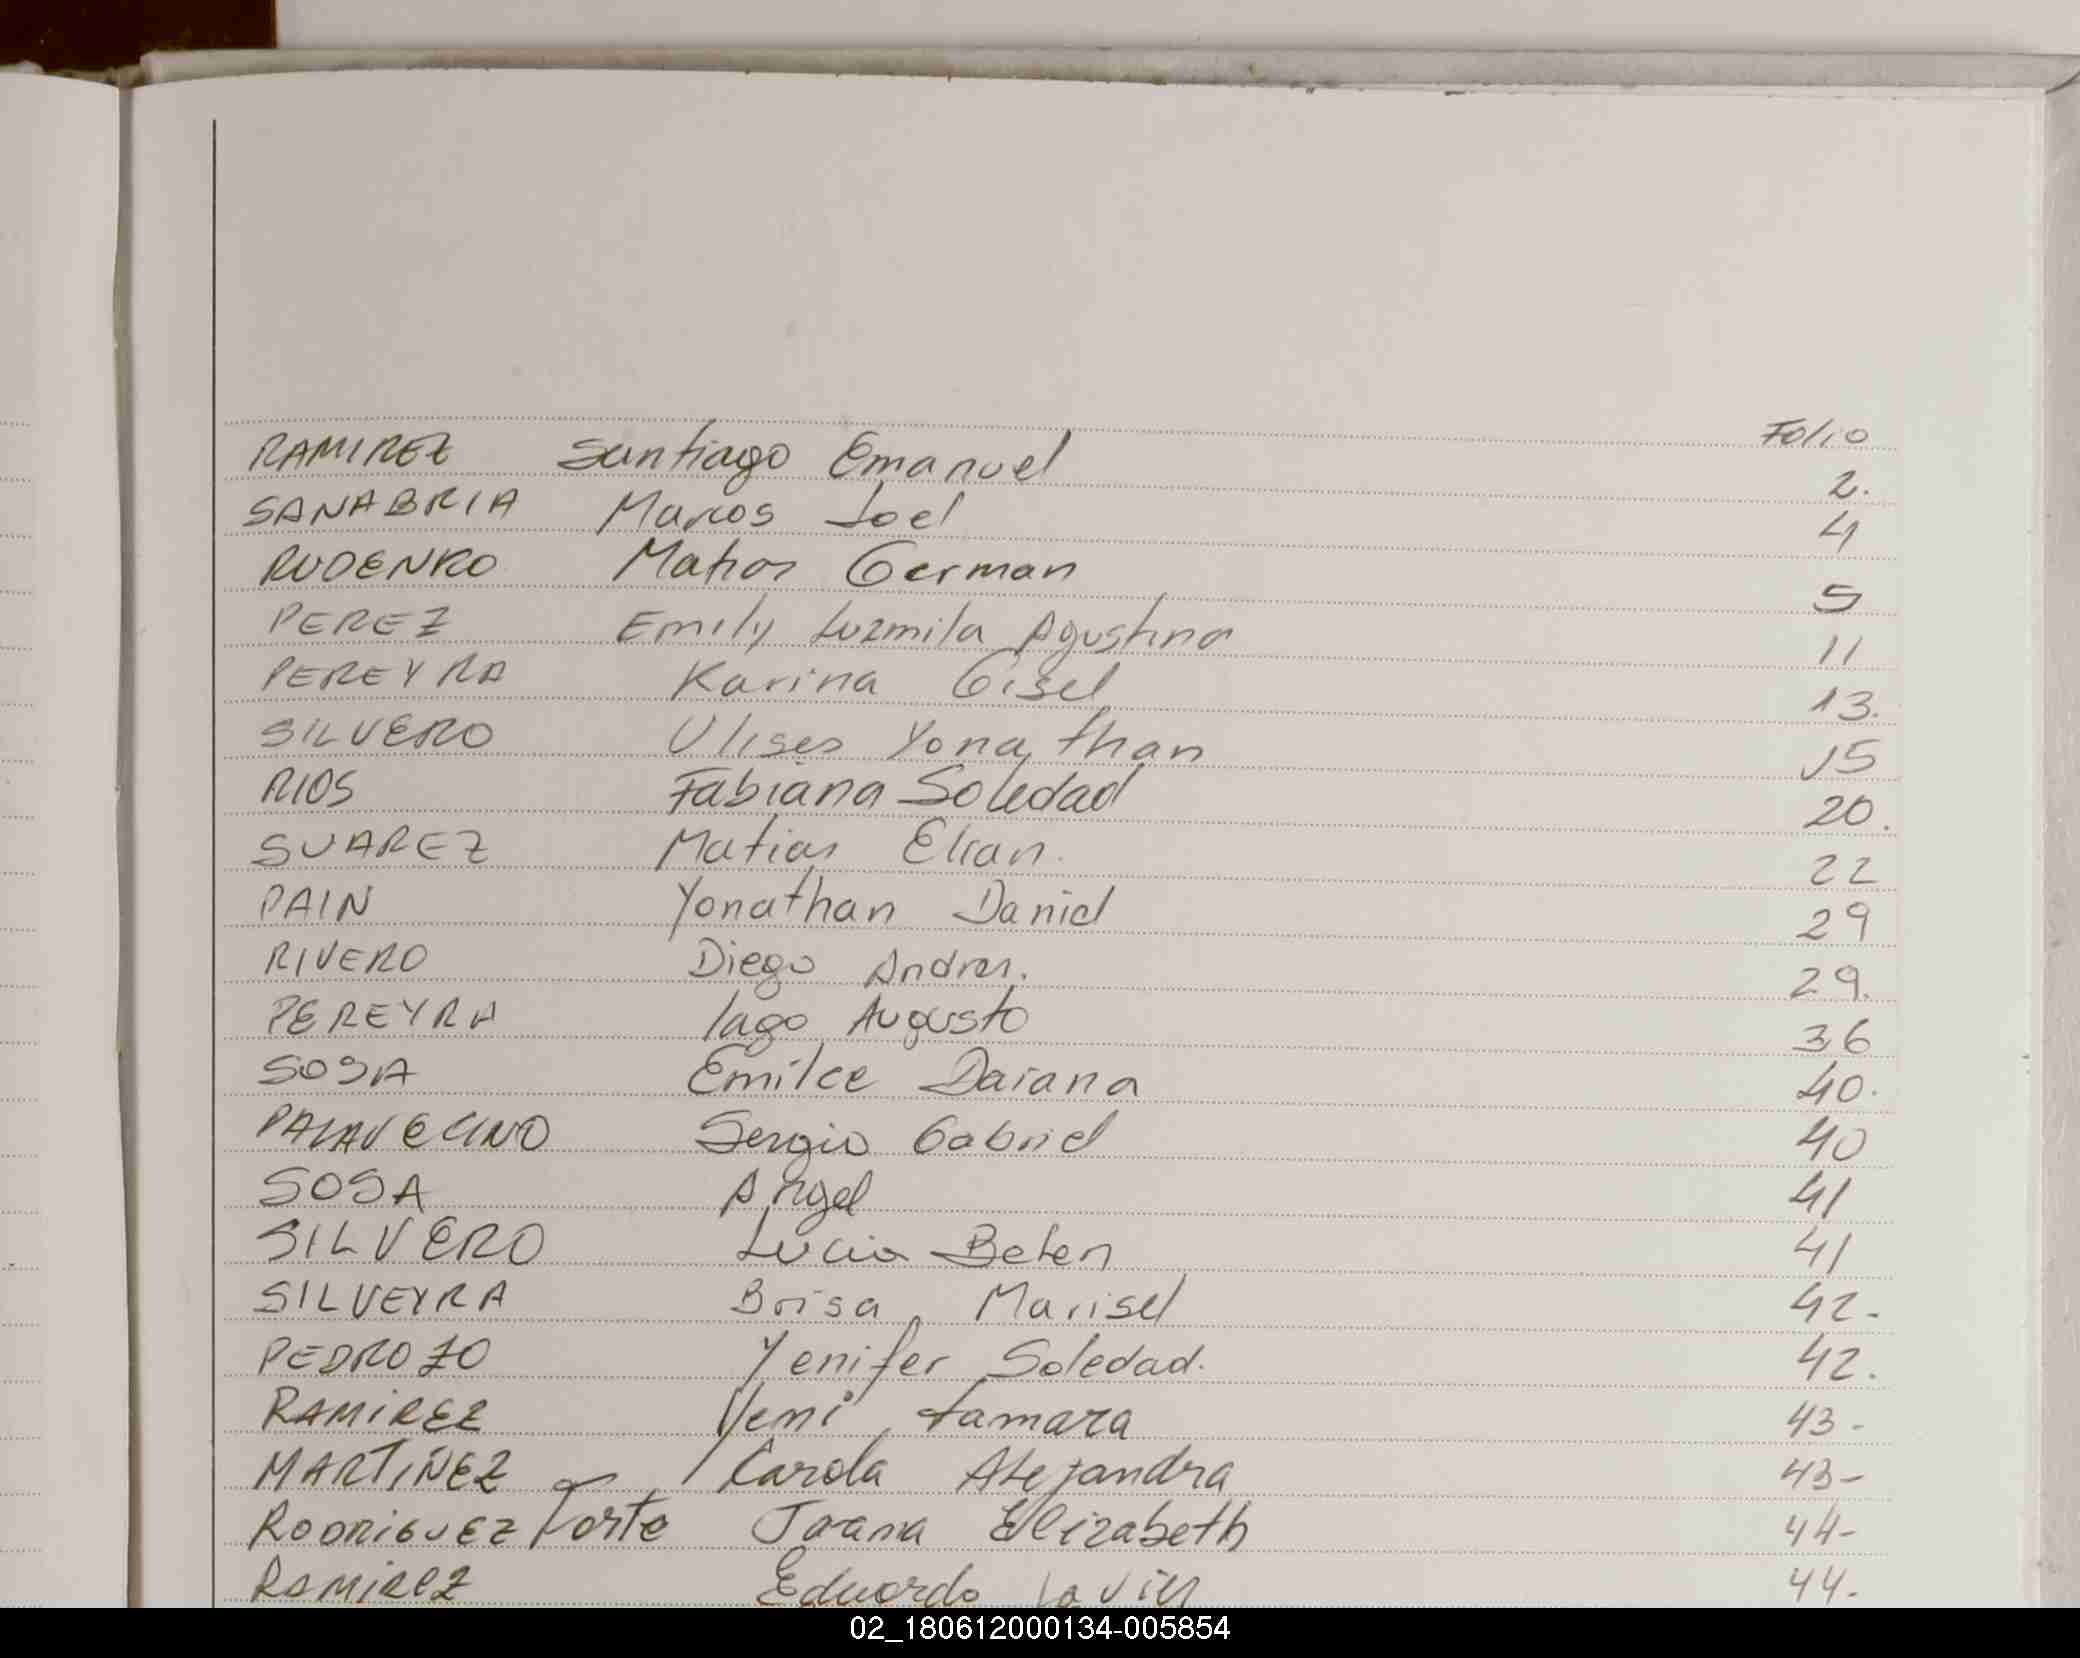 Folio
RAMIREZ Santiago Emanuel 2.
SANABRIA Marcos Joel 4
RUDENKO Matias German 5
PEREZ Emily Luzmila Agustina 11
PEREYRA Karina Gisel 13.
SILVERO Ulises Yonathan 15
RIOS Fabiana Soledad 20.
SUAREZ Matias Elian. 22
PAIN Yonathan Daniel 29
RIVERO Diego Andres. 29.
PEREYRA Iago Augusto 36
SOSA Emilce Daiana 40.
PALAVECINO Sergio Gabriel 40
SOSA Angel 41
SILVERO Lucia Belen 41
SILVEYRA Brisa Marisel 42-
PEDROZO Yenifer Soledad. 42.
RAMIREZ Yemi tamara 43-
MARTIÑEZ Carola Alejandra 43-
RODRIGUEZ Joana Elizabeth 44-
RAMIREZ Eduardo Javier 44-
02_180612000134-005854